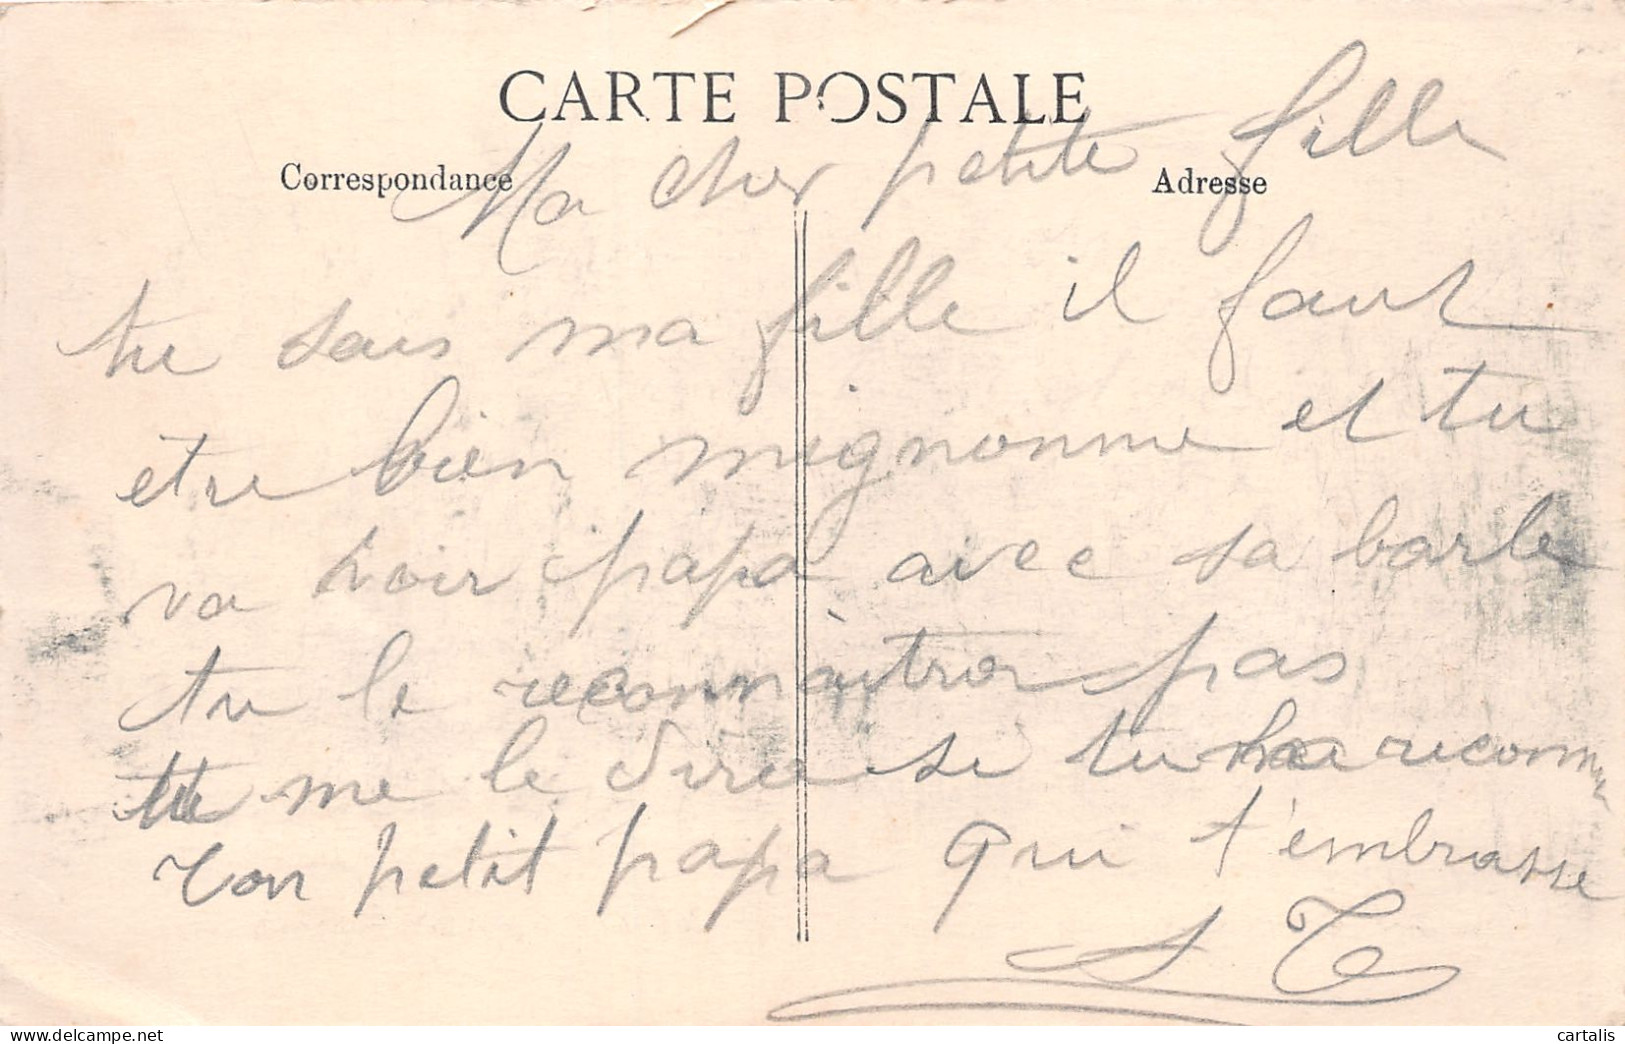 CARTE POSTALE
Correspondance
Adresse
Ma cher petite fille
tu sais ma fille il faut
etre bien mignonne et tu
va voir papa avec sa barbe
tu le reconnaitra pas
tu me le dire si tu la reconnu
Ton petit papa qui t'embrasse
www.delcampe.net
cartalis